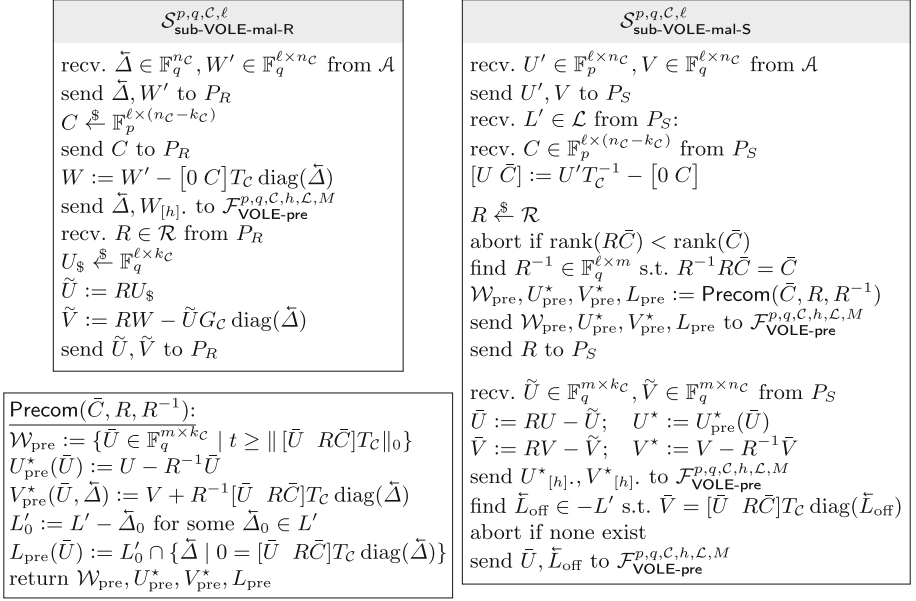 𝒮^{p,q,𝒞,ℓ}_{sub-VOLE-mal-R}
recv. Δ⃖ ∈ 𝔽_q^{n_𝒞}, W′ ∈ 𝔽_q^{ℓ×n_𝒞} from 𝒜
send Δ⃖, W′ to P_R
C ←$ 𝔽_p^{ℓ×(n_𝒞−k_𝒞)}
send C to P_R
W := W′ − [0 C]T_𝒞 diag(Δ⃖)
send Δ⃖, W_{[h]·} to ℱ^{p,q,𝒞,h,ℒ,M}_{VOLE-pre}
recv. R ∈ ℛ from P_R
U_$ ←$ 𝔽_q^{ℓ×k_𝒞}
Ũ := RU_$
Ṽ := RW − ŨG_𝒞 diag(Δ⃖)
send Ũ, Ṽ to P_R
Precom(C̄, R, R^{−1}):
𝒲_pre := {Ū ∈ 𝔽_q^{m×k_𝒞} | t ≥ ‖[Ū RC̄]T_𝒞‖_0}
U⋆_pre(Ū) := U − R^{−1}Ū
V⋆_pre(Ū, Δ⃖) := V + R^{−1}[Ū RC̄]T_𝒞 diag(Δ⃖)
L′_0 := L′ − Δ⃖_0 for some Δ⃖_0 ∈ L′
L_pre(Ū) := L′_0 ∩ {Δ⃖ | 0 = [Ū RC̄]T_𝒞 diag(Δ⃖)}
return 𝒲_pre, U⋆_pre, V⋆_pre, L_pre
𝒮^{p,q,𝒞,ℓ}_{sub-VOLE-mal-S}
recv. U′ ∈ 𝔽_p^{ℓ×n_𝒞}, V ∈ 𝔽_q^{ℓ×n_𝒞} from 𝒜
send U′, V to P_S
recv. L′ ∈ ℒ from P_S:
recv. C ∈ 𝔽_p^{ℓ×(n_𝒞−k_𝒞)} from P_S
[U C̄] := U′T_𝒞^{−1} − [0 C]
R ←$ ℛ
abort if rank(RC̄) < rank(C̄)
find R^{−1} ∈ 𝔽_q^{ℓ×m} s.t. R^{−1}RC̄ = C̄
𝒲_pre, U⋆_pre, V⋆_pre, L_pre := Precom(C̄, R, R^{−1})
send 𝒲_pre, U⋆_pre, V⋆_pre, L_pre to ℱ^{p,q,𝒞,h,ℒ,M}_{VOLE-pre}
send R to P_S
recv. Ũ ∈ 𝔽_q^{m×k_𝒞}, Ṽ ∈ 𝔽_q^{m×n_𝒞} from P_S
Ū := RU − Ũ; U⋆ := U⋆_pre(Ū)
V̄ := RV − Ṽ; V⋆ := V − R^{−1}V̄
send U⋆_{[h]·}, V⋆_{[h]·} to ℱ^{p,q,𝒞,h,ℒ,M}_{VOLE-pre}
find L⃖_off ∈ −L′ s.t. V̄ = [Ū RC̄]T_𝒞 diag(L⃖_off)
abort if none exist
send Ū, L⃖_off to ℱ^{p,q,𝒞,h,ℒ,M}_{VOLE-pre}